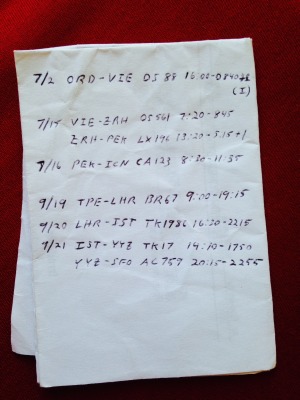 7/2 ORD-VIE OS 88 16:00-0840+1
(I)
7/15 VIE-ZRH OS561 7:20-845
ZRH-PEK LX196 13:20-5:15+1
7/16 PEK-ICN CA123 8:30-11:35
9/19 TPE-LHR BR67 9:00-19:15
9/20 LHR-IST TK1986 16:30-2215
9/21 IST-YYZ TK17 14:10-1750
YYZ-SFO AC757 20:15-2255